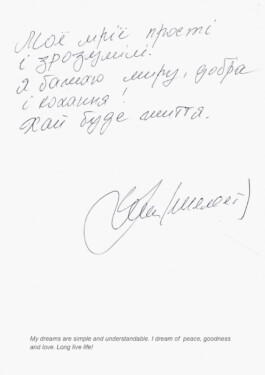 Мої мрії прості
і зрозумілі.
Я бажаю миру, добра
і кохання!
Хай буде життя.
My dreams are simple and understandable. I dream of peace, goodness
and love. Long live life!